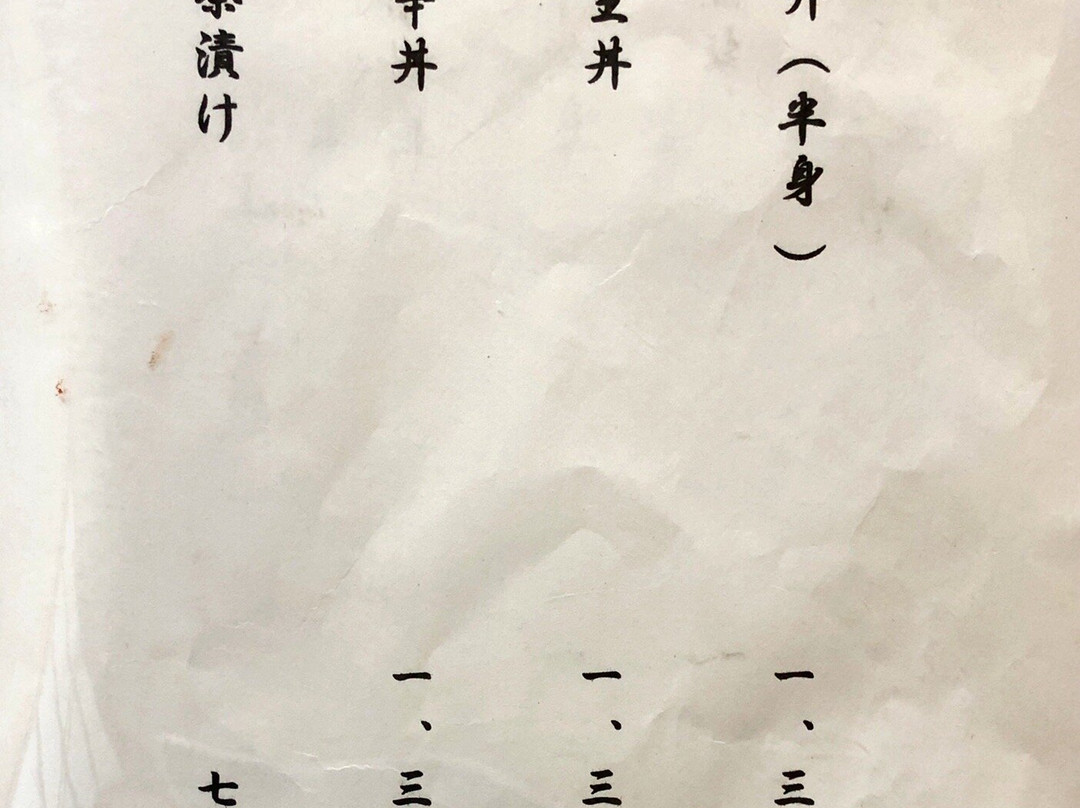 丼（半身）一、三
丼 一、三
丼 一、三
漬け 七